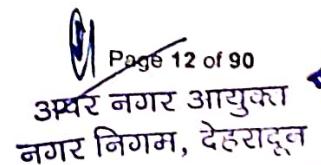 Page 12 of 90
अपर नगर आयुक्त
नगर निगम, देहरादून